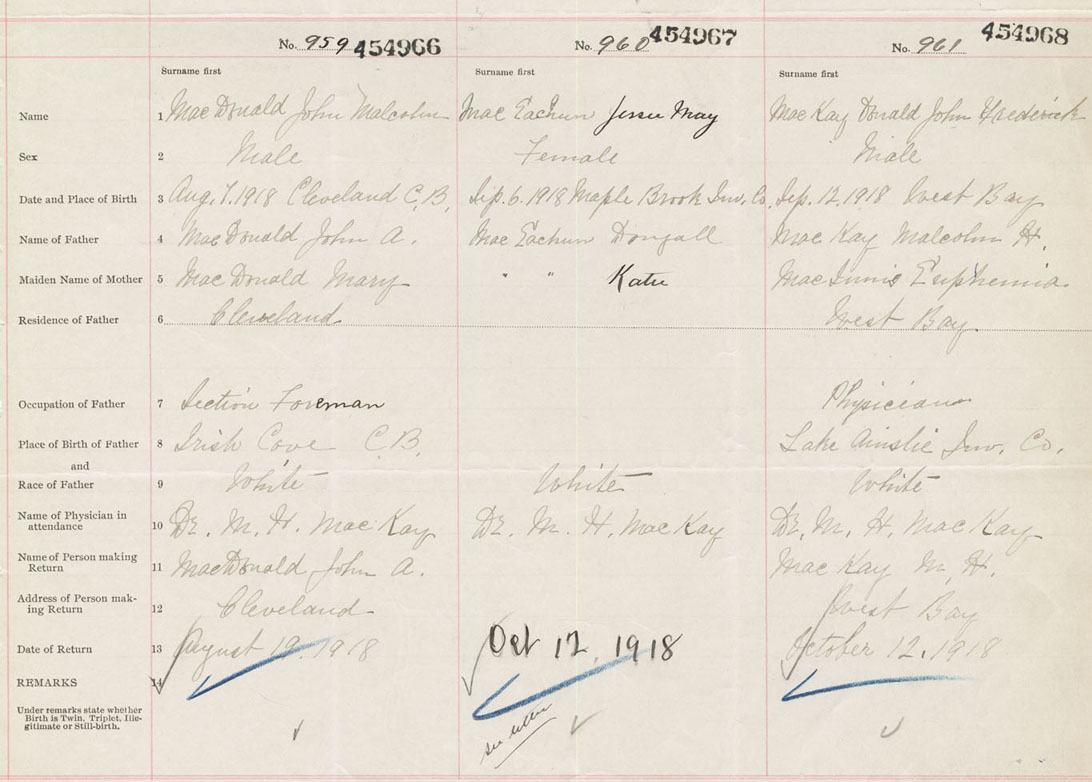 No. 959 454966 No. 960 454967 No. 961 454968
Surname first Surname first Surname first
Name 1 MacDonald John Malcolm MacEachern Jessie May MacKay Donald John Frederick
Sex 2 Male Female Male
Date and Place of Birth 3 Aug. 7. 1918 Cleveland C.B. Sep. 6. 1918 Maple Brook Inv. Co. Sep. 12. 1918 West Bay
Name of Father 4 MacDonald John A. MacEachern Dougall MacKay Malcolm H.
Maiden Name of Mother 5 MacDonald Mary " " Katie MacInnis Euphemia
Residence of Father 6 Cleveland West Bay
Occupation of Father 7 Section Foreman Physician
Place of Birth of Father 8 Irish Cove C.B. Lake Ainslie Inv. Co.
and
Race of Father 9 White White White
Name of Physician in
attendance 10 Dr. M. H. MacKay Dr. M. H. MacKay Dr. M. H. MacKay
Name of Person making
Return 11 MacDonald John A. MacKay M. H.
Address of Person mak-
ing Return 12 Cleveland West Bay
Date of Return 13 August 19. 1918 Oct 12, 1918 October 12. 1918
REMARKS 14
Under remarks state whether
Birth is Twin, Triplet, Ille-
gitimate or Still-birth.
see letter